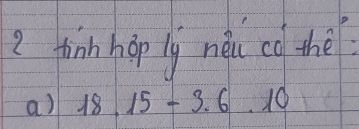 2 tính hợp lý nếu có thể :
a) 18.15 - 3.6.10